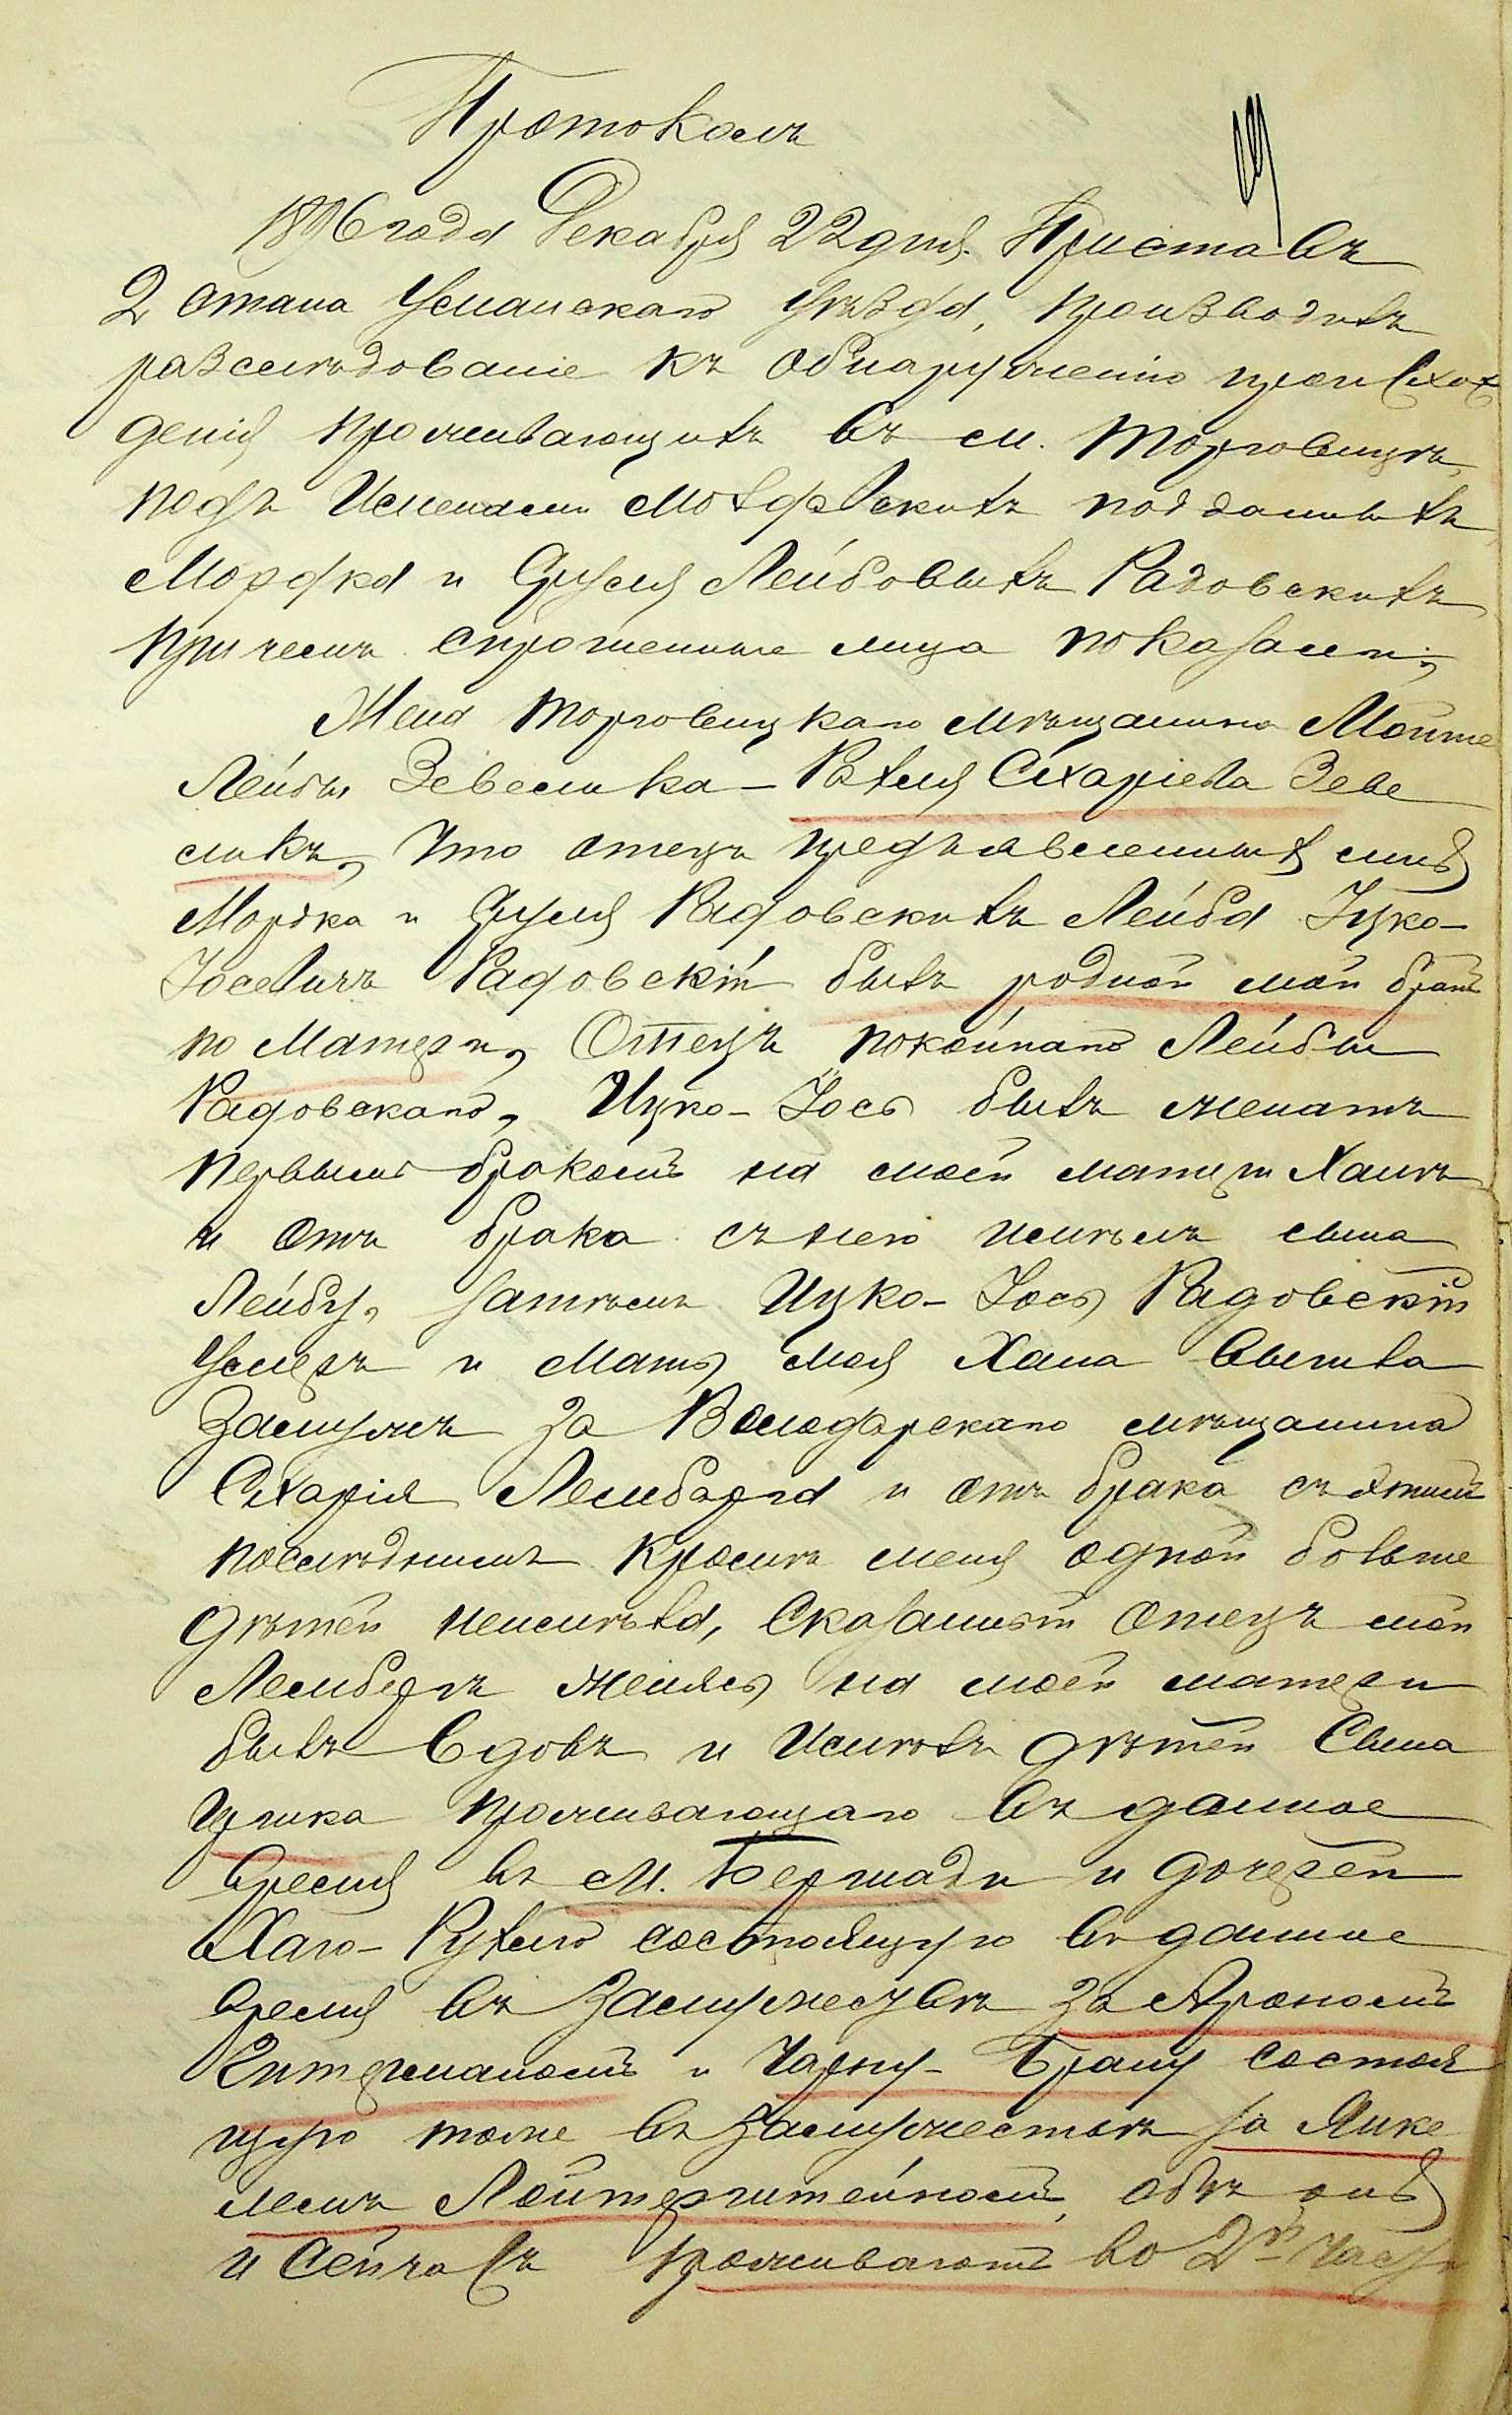 Протоколъ
1896 года Декабря 22 дня. Приставъ
2 стана Уманскаго уѣзда, производилъ
разслѣдованіе къ обнаруженію происхож
денія проживающихъ въ м. Торговицѣ,
подъ именами подданныхъ
Мордка и Сруля Лейбовыхъ Радовскихъ
причемъ спрошенные лица показали;
Жена Торговицкаго мѣщанина Мошие
Лейбы Зевелика – Рахля Схаріева Зеве
ликъ, что отецъ предъявленныхъ мнѣ
Мордка и Сруля Радовскихъ Лейба Ицко-
Іосевичъ Радовскій былъ родной мой братъ
по Матери, Отецъ покойнаго Лейбы
Радовскаго, Ицко-Іось былъ женатъ
первымъ бракомъ на моей матери Ханѣ
и отъ брака съ нею имѣлъ сына
Лейбу, затѣмъ Ицко-Іось Радовскій
умеръ и Мать моя Хана вышла
замужъ за Володарскаго мѣщанина
Схарія Лемберга и отъ брака съ этимъ
послѣднимъ кромѣ меня одной больше
дѣтей неимѣла, Сказанный отецъ мой
Лембергъ женясь на моей матери
былъ вдовъ и имѣлъ дѣтей Сына
проживающаго въ данное
время въ м. Бершади и дочерей
Хаю-Рухлю состоящую въ данное
время въ замужествѣ за Арономъ
Гитерманомъ и Чарну-Брану состоя
щую тоже въ замужествѣ за Янке
лемъ Лойтерштейномъ, обѣ онѣ
и сейчасъ проживаютъ во 2й части